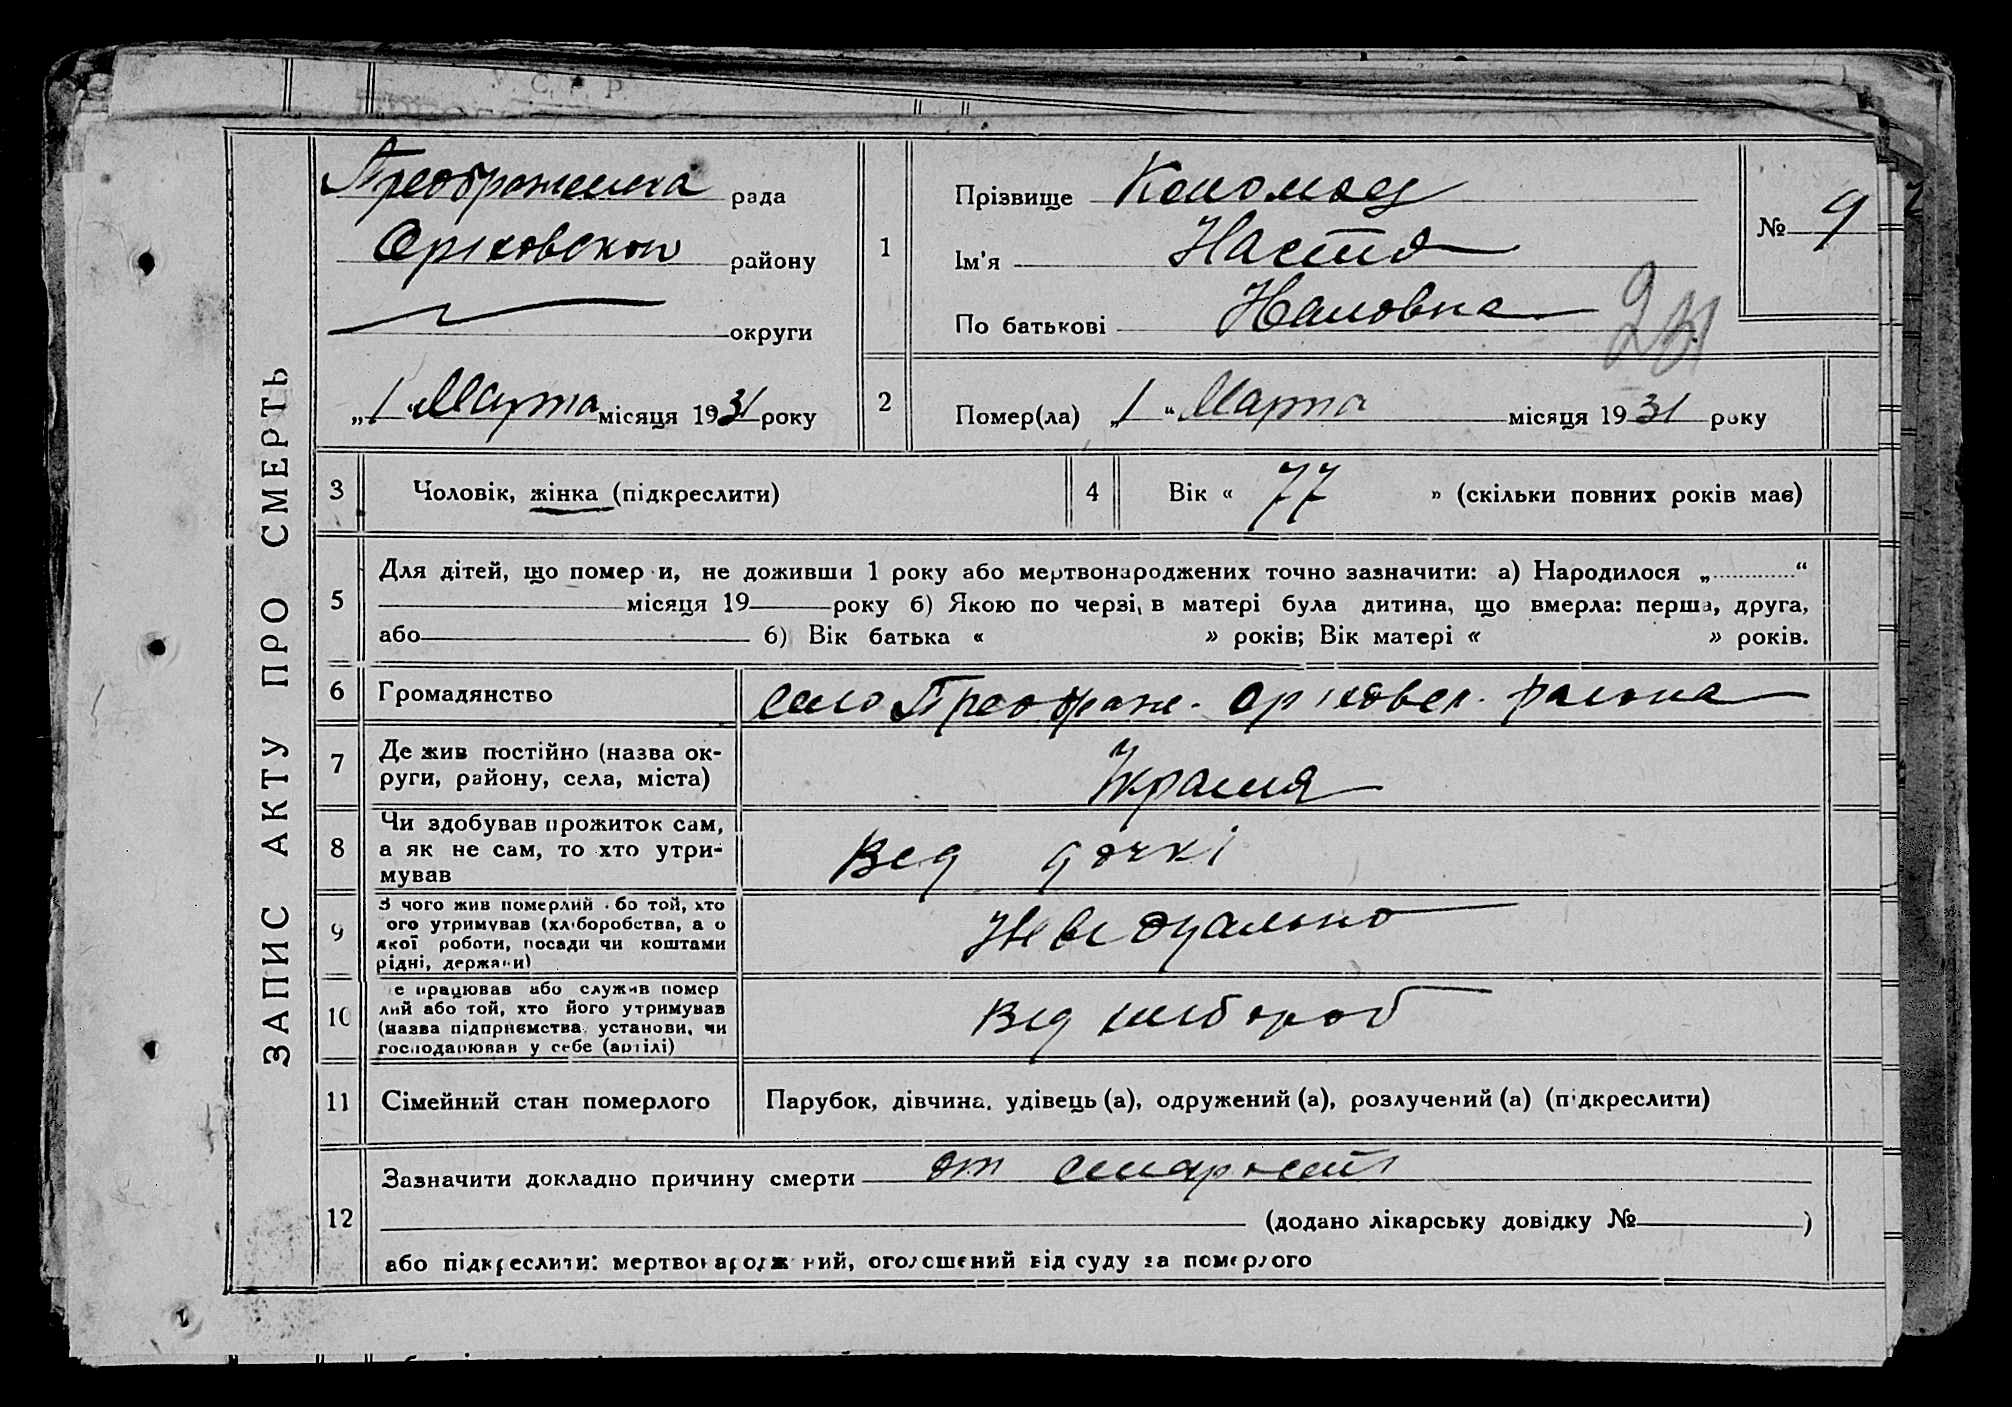 ЗАПИС АКТУ ПРО СМЕРТЬ
У.С.Р.Р.
Преображенська рада
Оріховского району
округи
„1“ Марта місяця 1931 року
1
Прізвище
Ім'я Настя
По батькові
№ 9
231
2
Помер(ла) „1“ Марта місяця 1931 року
3 Чоловік, жінка (підкреслити)
4 Вік « 77 » (скільки повних років має)
5
Для дітей, що помер и, не доживши 1 року або мертвонароджених точно зазначити: а) Народилося „ “
місяця 19 року б) Якою по черзі, в матері була дитина, що вмерла: перша, друга,
або б) Вік батька « » років; Вік матері « » років.
6 Громадянство село Преображе. Оріховск. района
7
Де жив постійно (назва ок-
руги, району, села, міста)
8
Чи здобував прожиток сам,
а як не сам, то хто утри-
мував
Вед дочкі
9
З чого жив померлий або той, хто
ого утримував (хліборобства, а о
якої роботи, посади чи коштами
рідні, держави)
10
е працював або служив помер
лий або той, хто його утримував
(назва підприємства, установи, чи
господарював у себе (артілі)
Вед
11 Сімейний стан померлого Парубок, дівчина, удівець (а), одружений (а), розлучений (а) (підкреслити)
12
Зазначити докладно причину смерти от старости
(додано лікарську довідку № )
або підкреслити: мертвонароджений, оголошений від суду за померлого